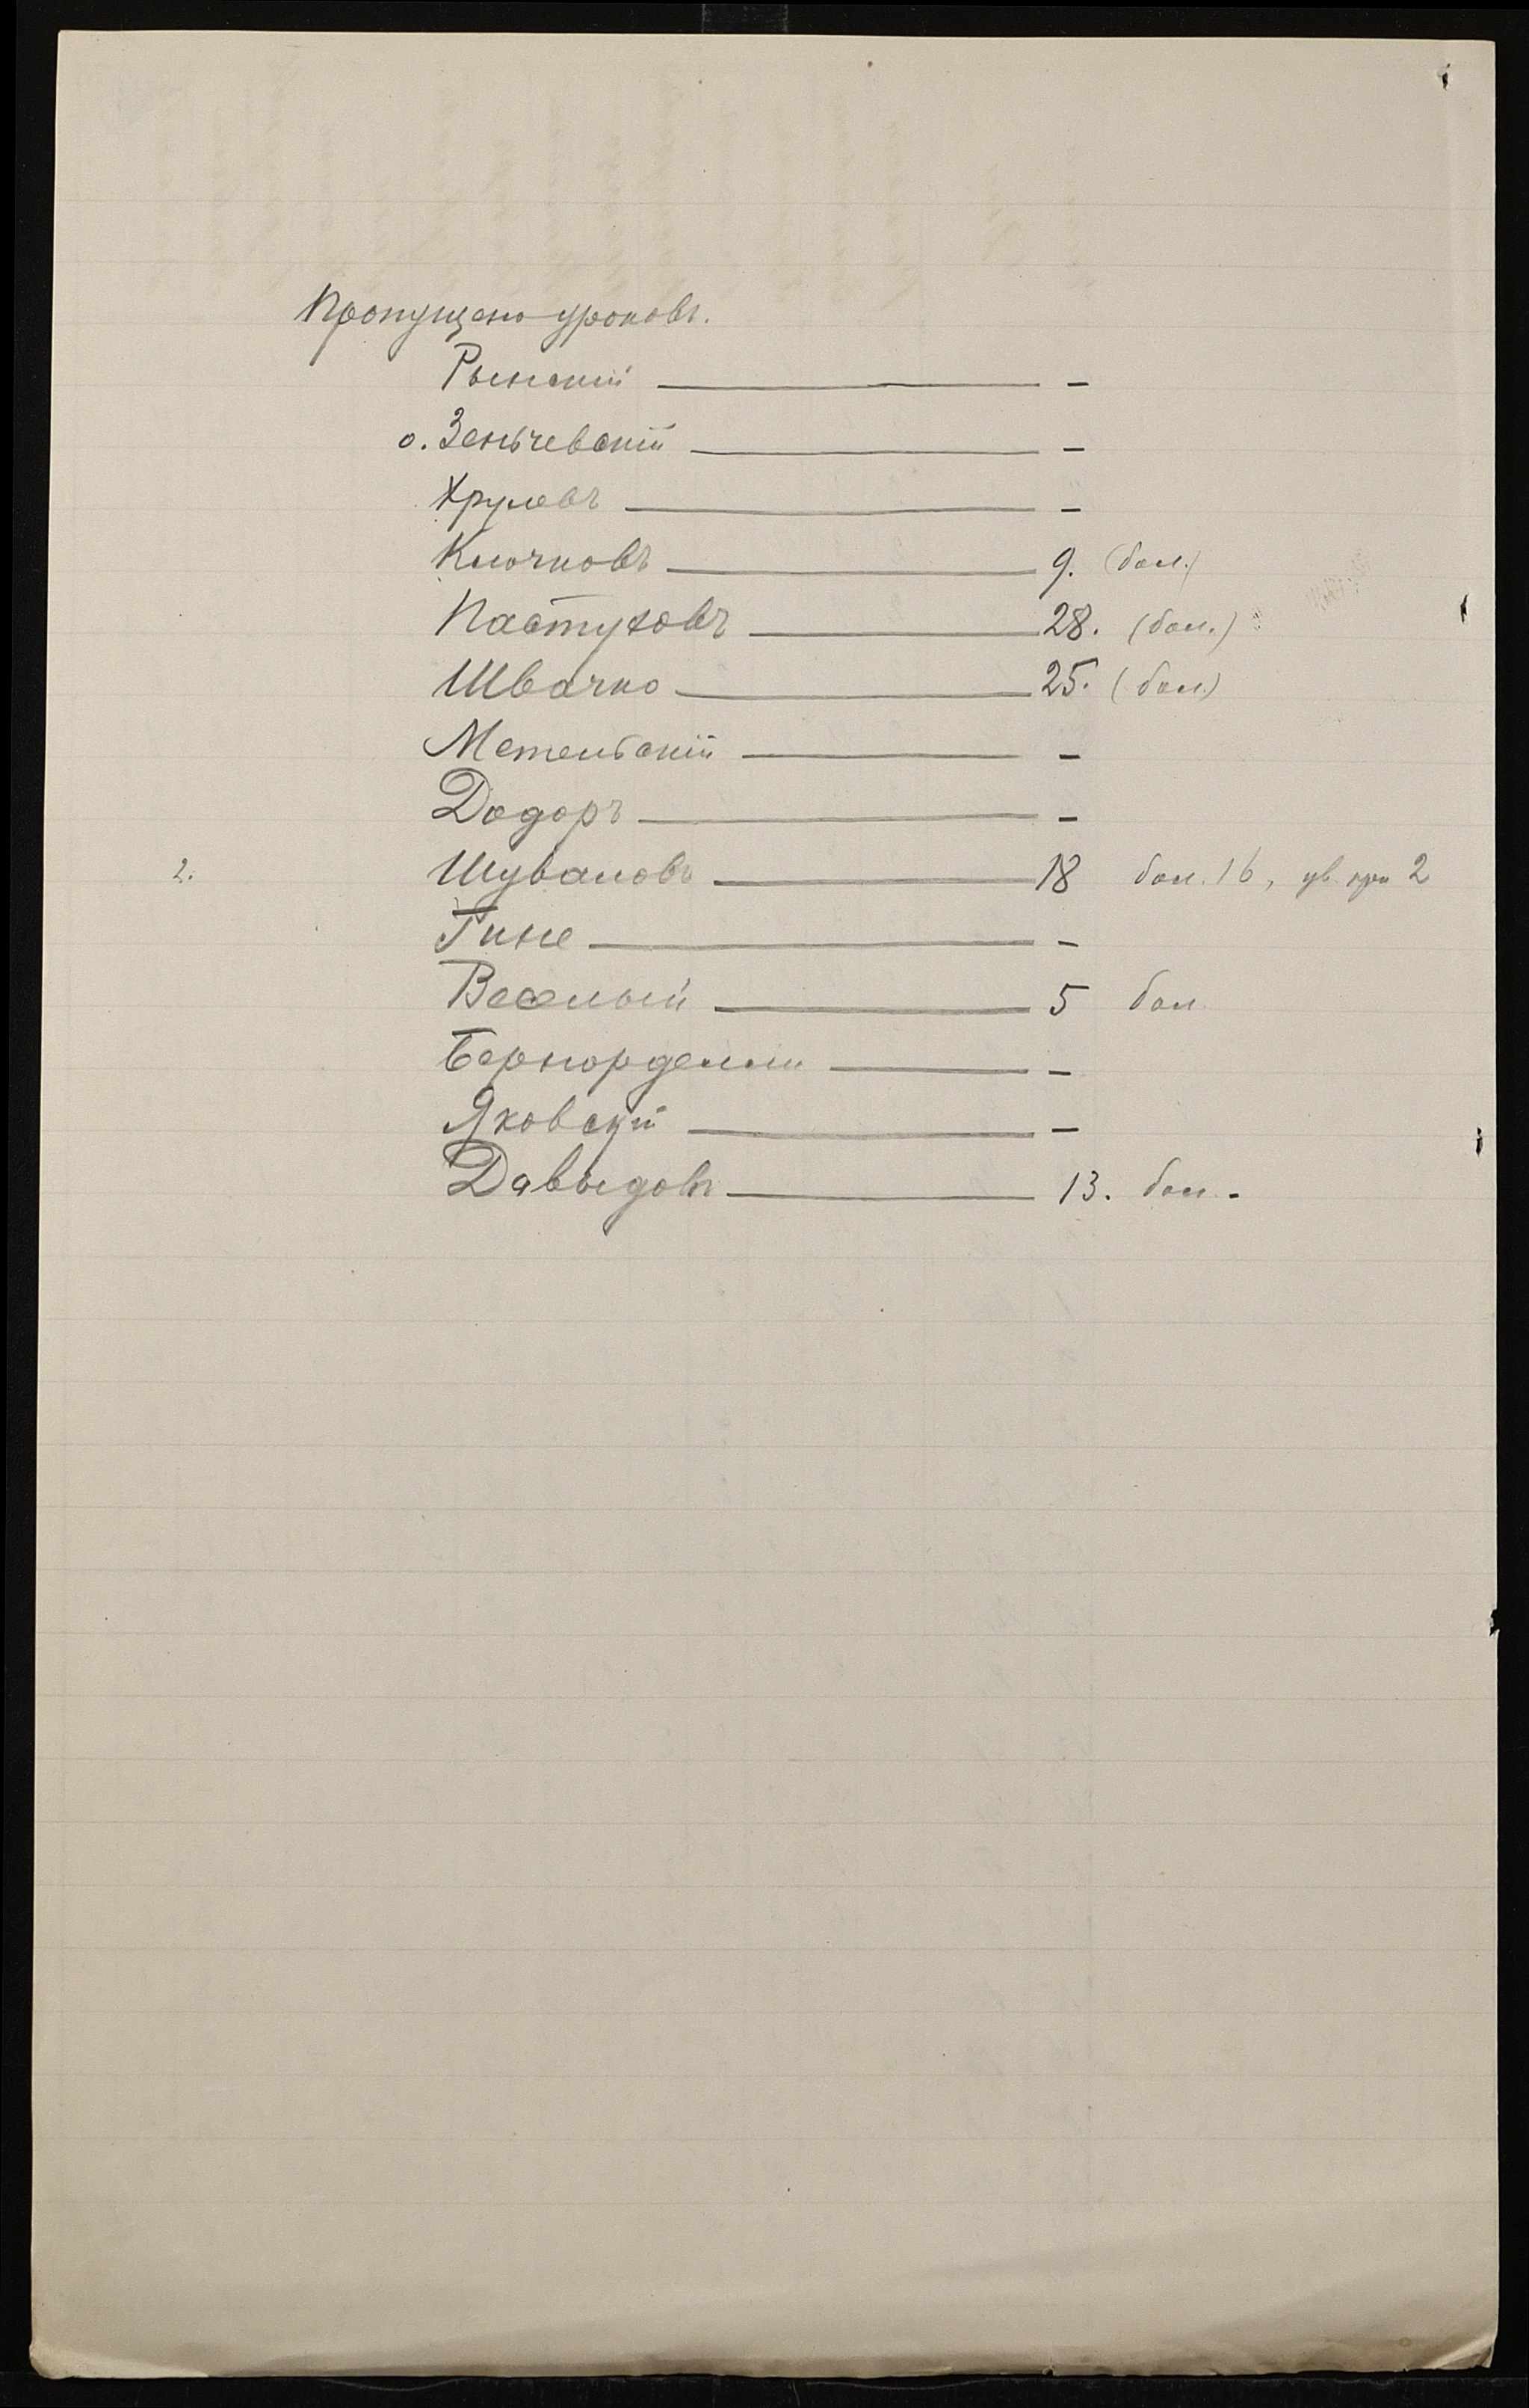 Пропущено уроковъ.
Рынскій — –
о. Зеньчевскій — –
Хрулевъ — –
Клочковъ — 9. (бол.)
Пастуховъ — 28. (бол.)
Швачко — 25. (бол.)
Метельскій — –
Додоръ — –
2. Шуваловъ — 18 бол. 16, ув. 2
Гине — –
Веселый — 5 бол.
Бернарделли — –
Яковскій — –
Давыдовъ — 13. бол. -